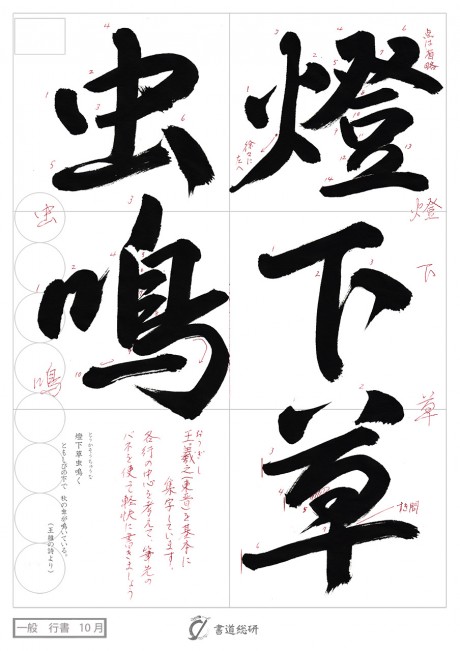 燈下草
虫鳴
点は省略
徐々に
左へ
燈
下
草
虫
鳴
おうぎし
王羲之(東晋)を基本に
集字しています。
各行の中心を考えて、筆先の
バネを使って軽快に書きましょう
とうかそうちゅうな
燈下草虫鳴く
ともしびの下で 秋の虫が鳴いている。
(王維の詩より)
一般 行書 10月
書道総研